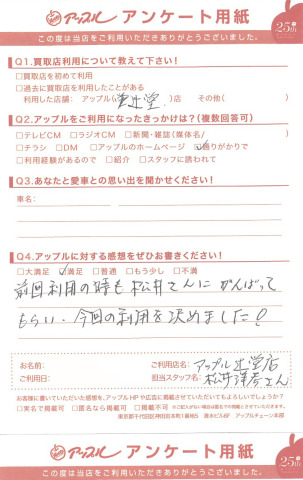 アップル アンケート用紙 25th
この度は当店をご利用いただきありがとうございました。
Q1.買取店利用について教えて下さい!
□買取店を初めて利用
□過去に買取店を利用したことがある
利用した店舗: アップル( 辻堂 )店 その他( )
Q2.アップルをご利用になったきっかけは?(複数回答可)
□テレビCM □ラジオCM □新聞・雑誌(媒体名/ )
□チラシ □DM □アップルのホームページ ☑通りがかりで
□利用経験があるので □紹介 □スタッフに誘われて
Q3.あなたと愛車との思い出を聞かせください!
車名:
Q4.アップルに対する感想をぜひお書きください!
□大満足 ☑満足 □普通 □もう少し □不満
前回利用の時も松井さんにがんばって
もらい、今回の利用を決めました!
お名前: ご利用店名: アップル辻堂店
ご利用日: 担当スタッフ名: 松井 さん
お客様に書いていただいた感想を、アップルHPや広告に掲載させていただいてもよろしいでしょうか?
□実名で掲載可 □匿名なら掲載可 □掲載不可
アップル アンケート用紙 25th
この度は当店をご利用いただきありがとうございました。